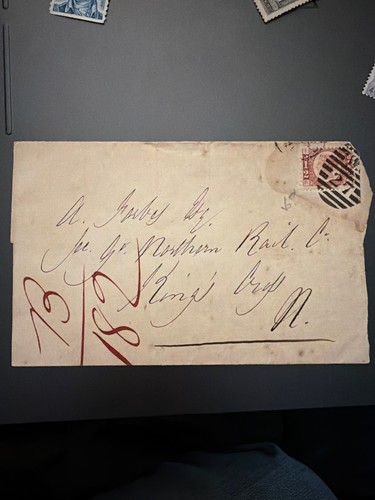 A. Forbes Esq
Sec Gt. Northern Rail. Co
King's Cross
N.
B/182